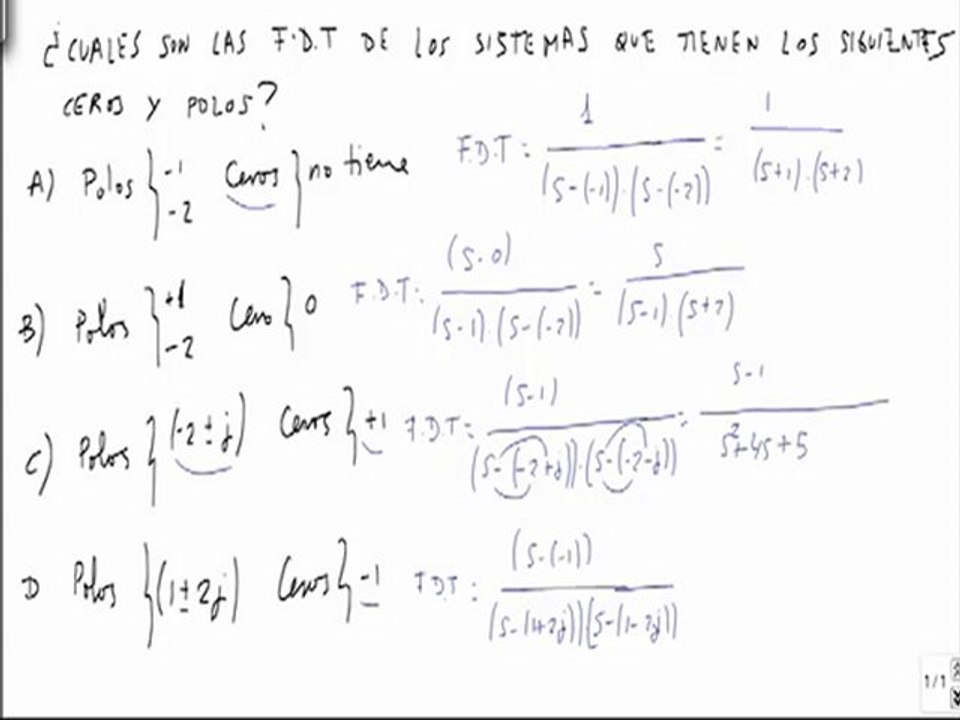 ¿CUALES SON LAS F.D.T DE LOS SISTEMAS QUE TIENEN LOS SIGUIENTES
CEROS Y POLOS?
A) Polos } -1 -2 Ceros } no tiene F.D.T = 1 / (s-(-1))·(s-(-2)) = 1 / (s+1)·(s+2)
B) Polos } +1 -2 Cero } 0 F.D.T = (s-0) / (s-1)·(s-(-2)) = s / (s-1)·(s+2)
C) Polos } (-2 ± j) Ceros } +1 F.D.T = (s-1) / (s-(-2+j))·(s-(-2-j)) = s-1 / s²+4s+5
D Polos } (1±2j) Ceros } -1 F.D.T = (s-(-1)) / (s-(1+2j))(s-(1-2j))
1/1